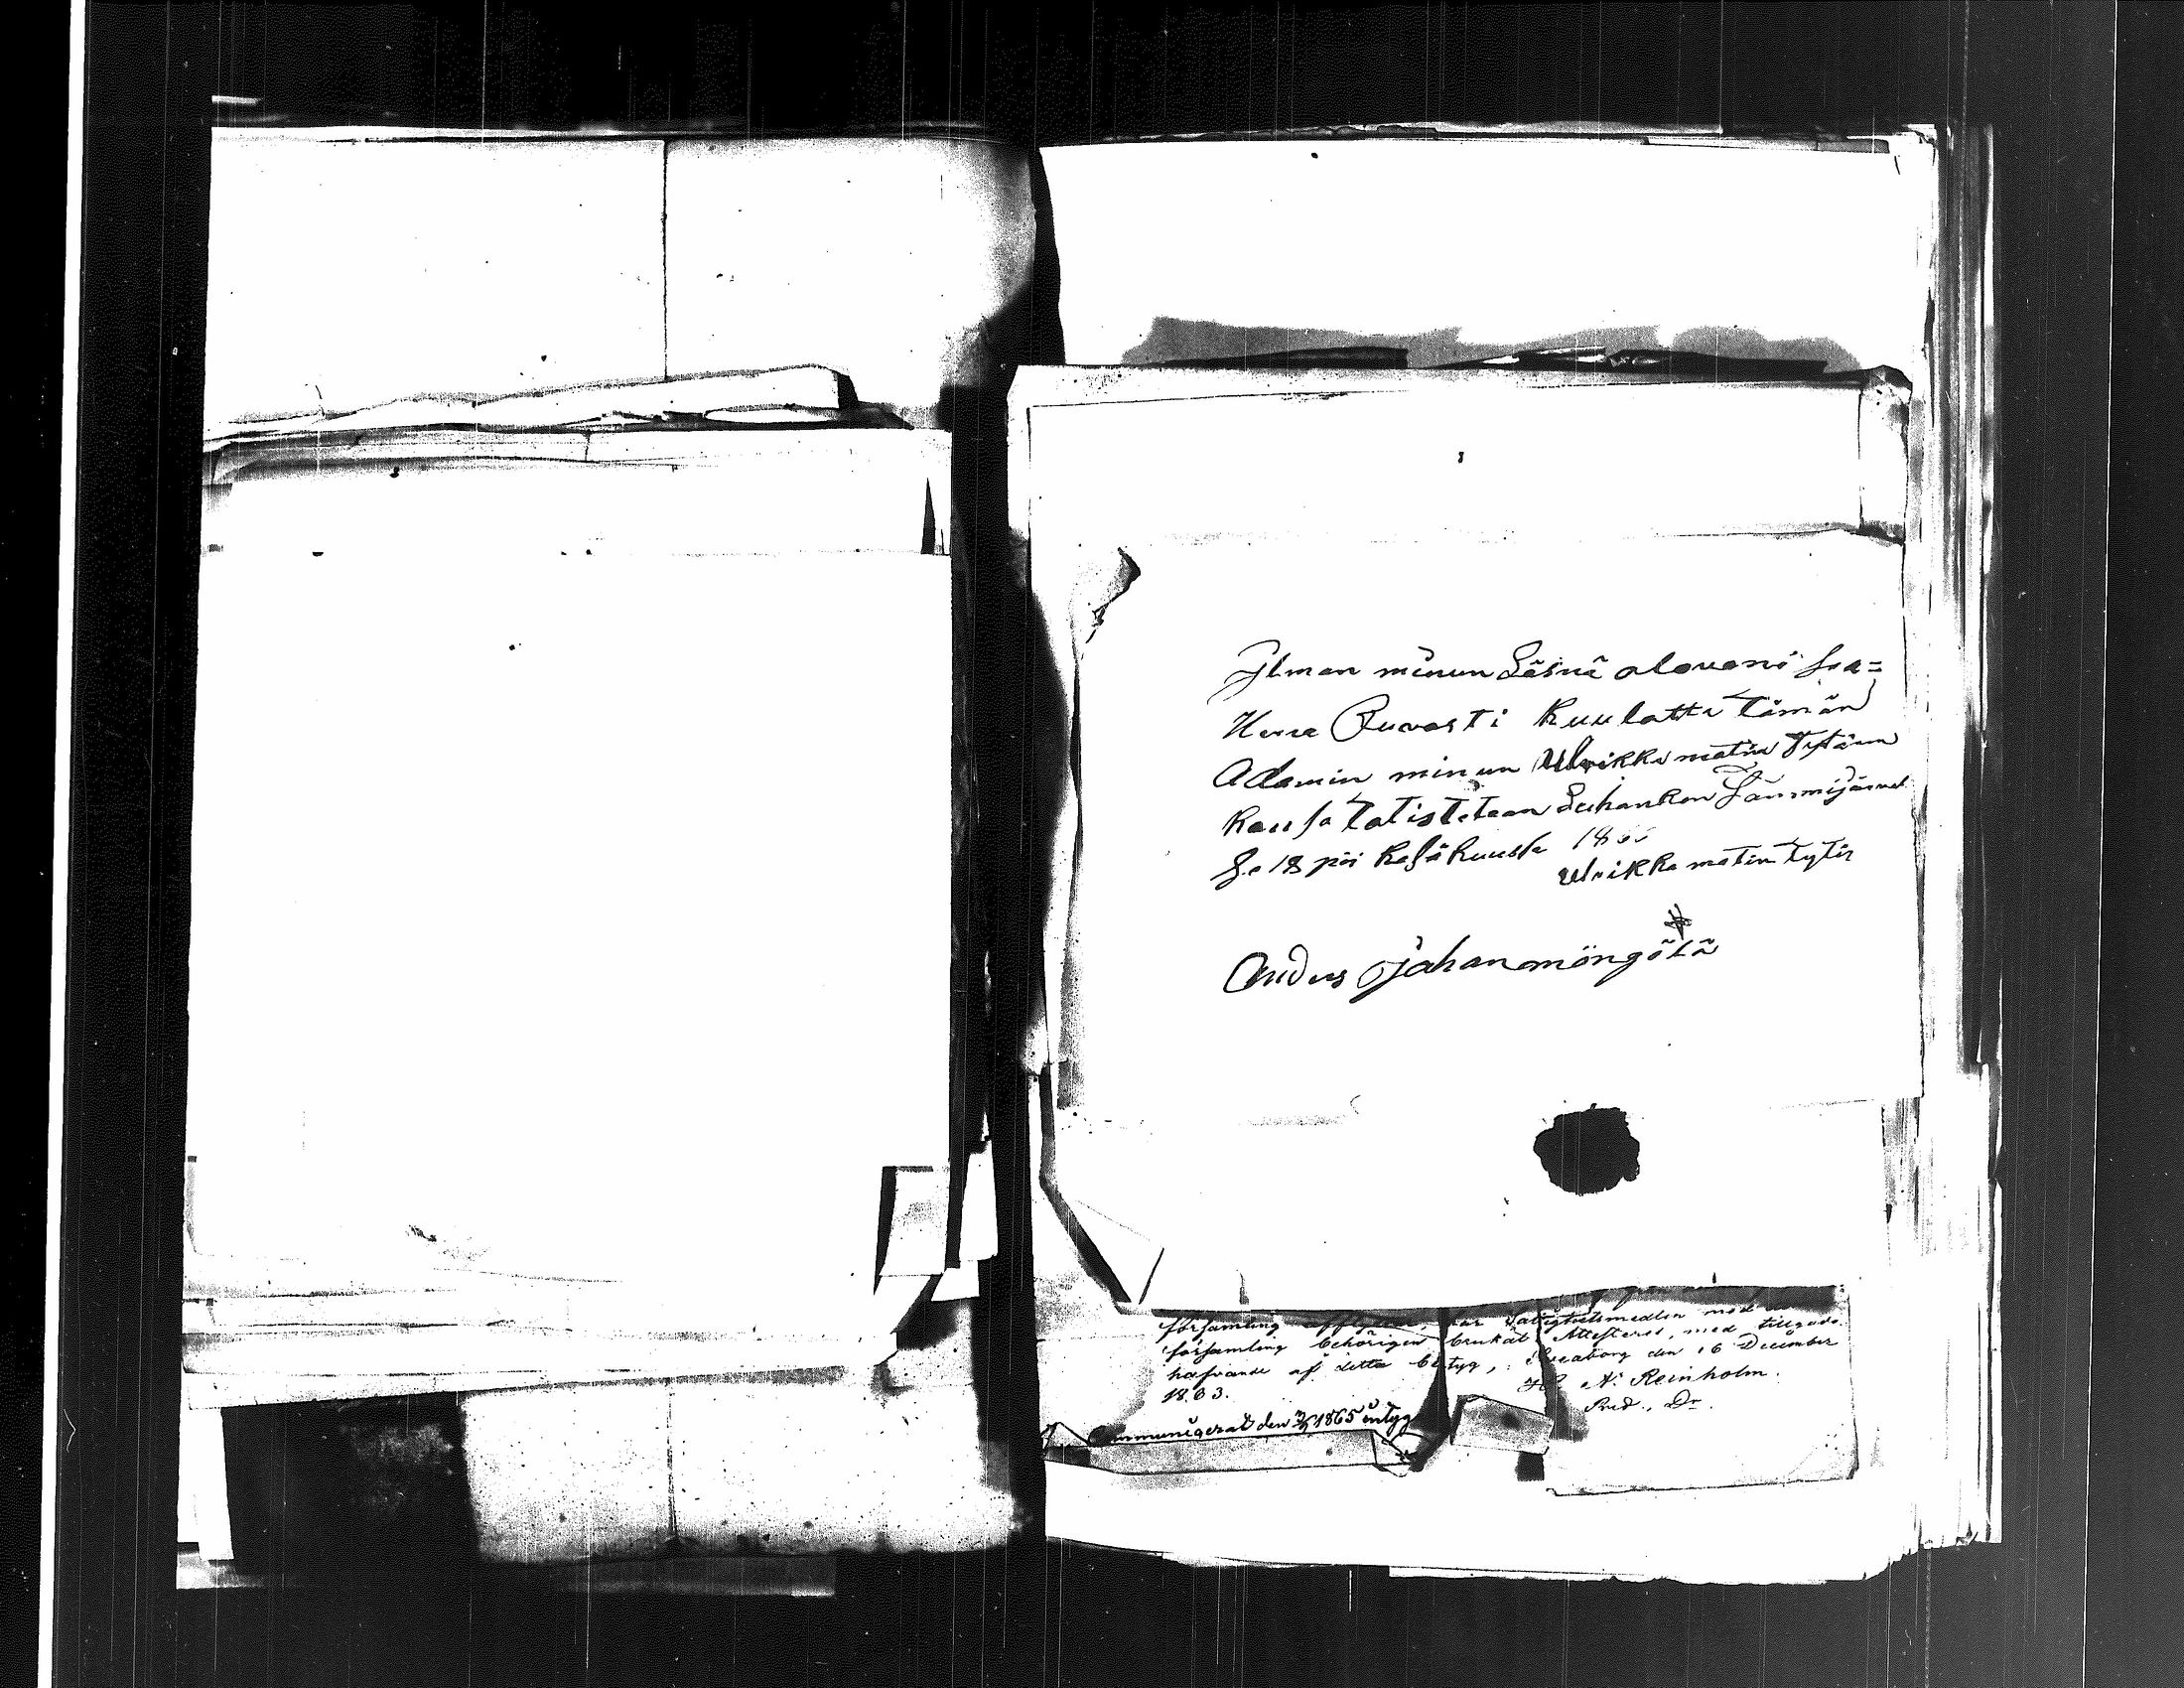 Ilman minun Läsnä olouani saa=
Herra Ruvasti Kuulatta tämän
Adamin minun Ulrikka matin Tytärn
kansa Tatistetaan Luhankon Lammijärvel
Se 18 päi kesäkuusta 18
Ulrikka matin tytär
Anders Johan möngölä
församling
församling behörigen brukat Attesteras, med tillgodo-
hafvande af detta betyg, Sveaborg den 16 December
1863.
N. Reinholm.
Pred., Dr.
mmunigerat den 1865 intyg